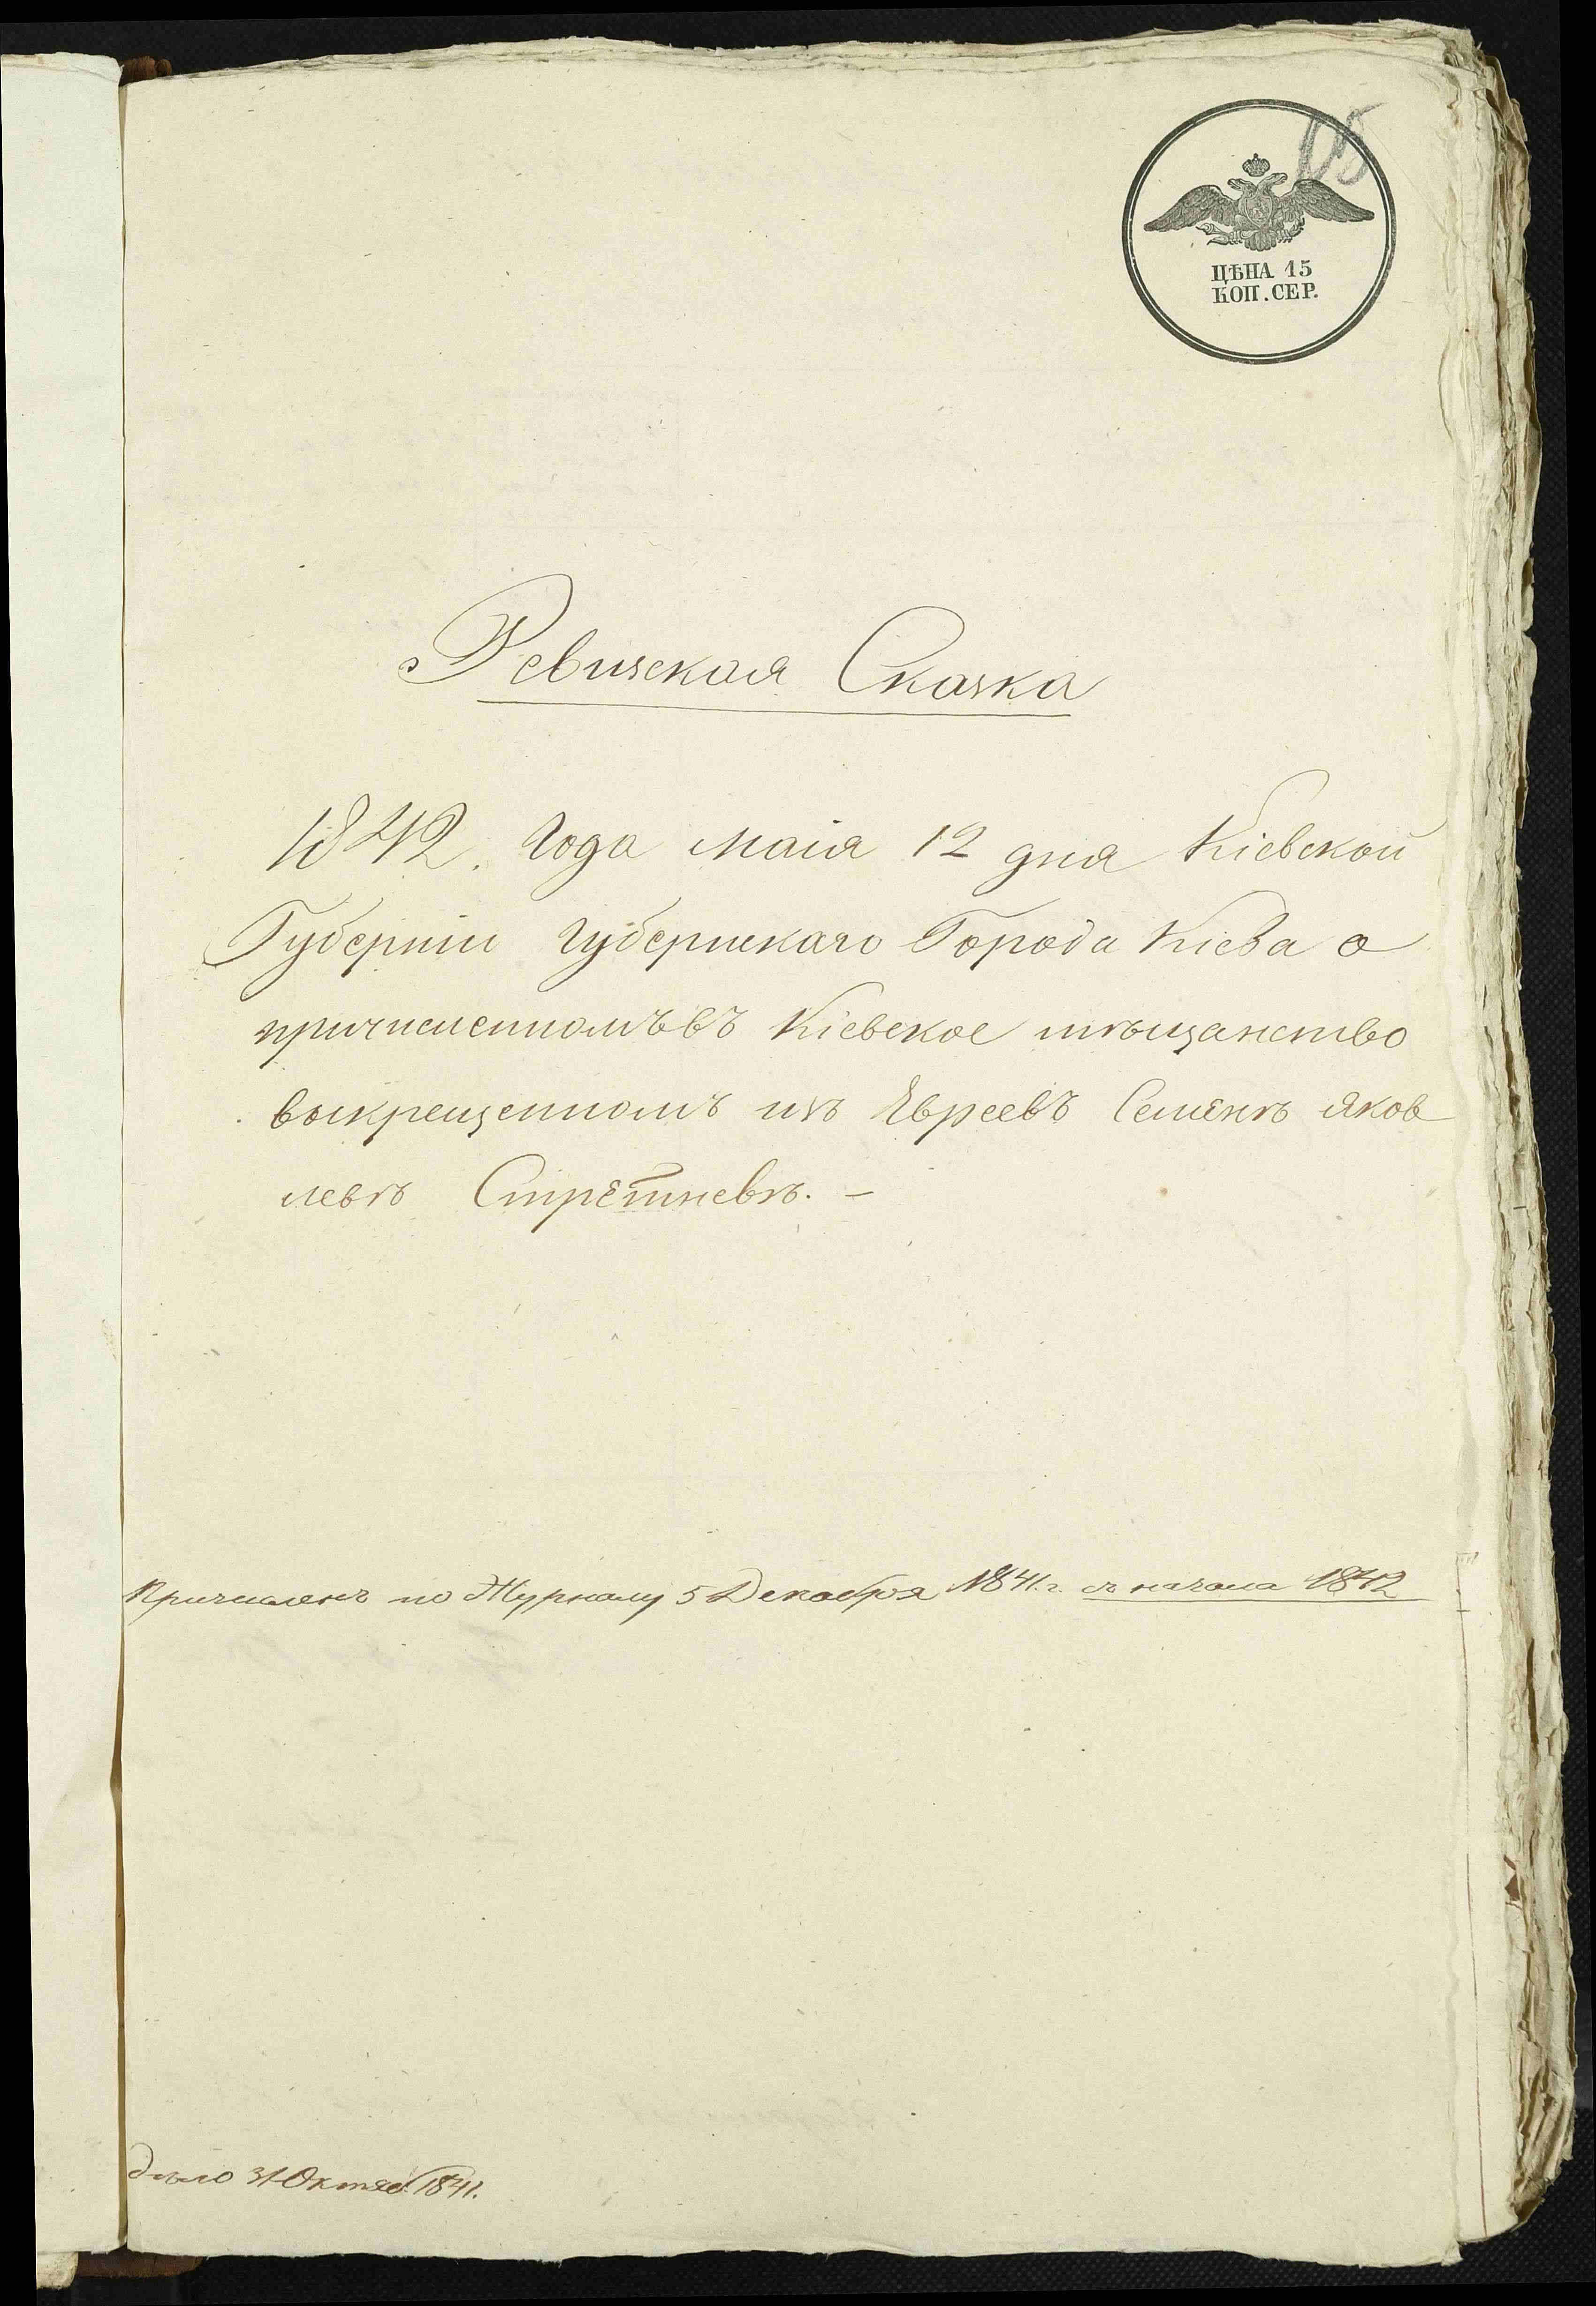 105
ЦѢНА 15
КОП. СЕР.
Ревизская Сказка
1842. Года маія 12 дня Кіевской
Губерніи Губернскаго Города Кіева о
причисленномъ въ Кіевское мѣщанство
выкрещенномъ изъ Евреевъ Семенѣ Яков
левѣ Стрѣтневѣ. –
Причисленъ по Журналу 5 Декабря 1841 г. съ начала 1842
дѣло 31 Октяб. 1841.